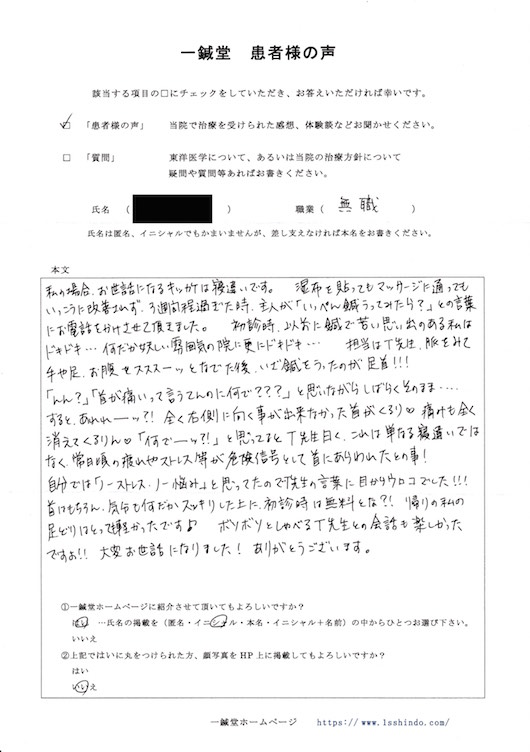 一鍼堂 患者様の声
該当する項目の□にチェックをしていただき、お答えいただければ幸いです。
☑ 「患者様の声」 当院で治療を受けられた感想、体験談などお聞かせください。
□ 「質問」 東洋医学について、あるいは当院の治療方針について
疑問や質問等あればお書きください。
氏名 ( ) 職業 ( 無職 )
氏名は匿名、イニシャルでもかまいませんが、差し支えなければ本名をお書きください。
本文
私の場合、お世話になるキッカケは寝違いです。 湿布を貼ってもマッサージに通っても
いっこうに改善されず、3週間程過ぎた時、主人が「いっぺん鍼うってみたら?」との言葉
にお電話をかけさせて頂きました。 初診時、以前に鍼で苦い思い出のある私は
ドキドキ…何だか妖しい雰囲気の院に更にドキドキ… 担当はT先生、脈をみて
手や足、お腹をスススーッとなでた後、いざ鍼をうったのが足首!!!
「んん?」「首が痛いって言うてんのに何で???」と思いながらしばらくそのまま‥‥
すると、あれれーーッ?! 全く右側に向く事が出来なかった首がくるり♡ 痛みも全く
消えてくるりん♡ 「何でーッ?!」と思ってるとT先生曰く、これは単なる寝違いでは
なく、常日頃の疲れやストレス等が危険信号として首にあらわれたとの事!
自分では「ノーストレス・ノー悩み」と思ってたのでT先生の言葉に目からウロコでした!!!
首はもちろん、気分も何だかスッキリした上に、初診時は無料とな?! 帰りの私の
足どりはとっても軽かったです♪ ボソボソとしゃべるT先生との会話も楽しかった
ですよ!! 大変お世話になりました! ありがとうございます。
①一鍼堂ホームページに紹介させて頂いてもよろしいですか?
はい …氏名の掲載を (匿名・イニシャル・本名・イニシャル+名前) の中からひとつお選び下さい。
いいえ
②上記ではいに丸をつけられた方、顔写真をHP上に掲載してもよろしいですか?
はい
いいえ
一鍼堂ホームページ https://www.1sshindo.com/